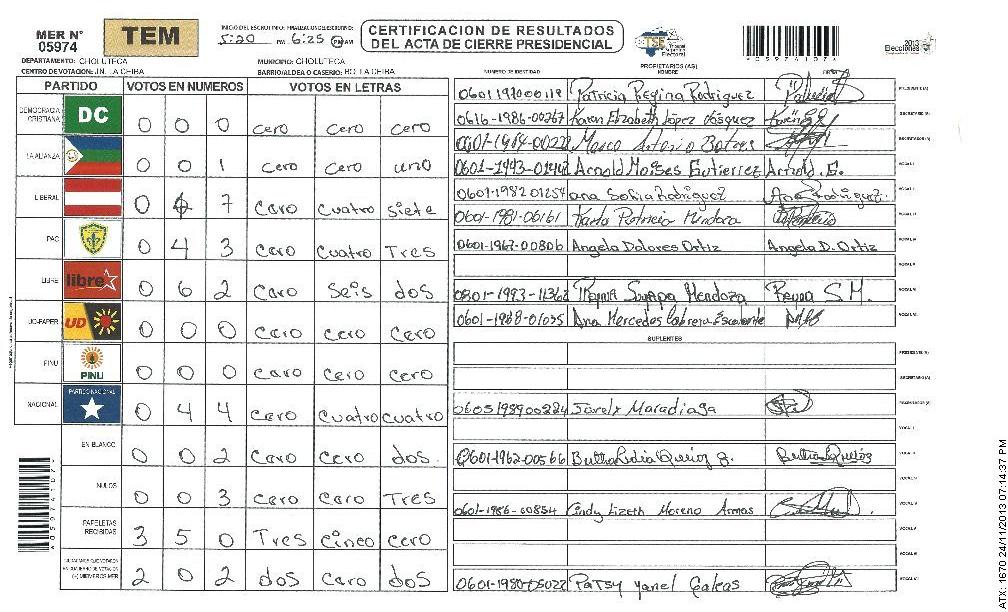 MER N° 05974
TEM
INICIO DEL ESCRUTINIO: 5:20 PM FINALIZACION DEL ESCRUTINIO: 6:25 PM AM
CERTIFICACION DE RESULTADOS
DEL ACTA DE CIERRE PRESIDENCIAL
TSE Tribunal Supremo Electoral
2013 Elecciones
DEPARTAMENTO: CHOLUTECA MUNICIPIO: CHOLUTECA
CENTRO DE VOTACION: J.N. LA CEIBA BARRIO/ALDEA O CASERIO: BO. LA CEIBA
PARTIDO VOTOS EN NUMEROS VOTOS EN LETRAS
DEMOCRACIA CRISTIANA DC 0 0 0 cero cero cero
LA ALIANZA 0 0 1 cero cero uno
LIBERAL 0 4 7 cero cuatro siete
PAC 0 4 3 cero cuatro Tres
LIBRE libre 0 6 2 cero seis dos
UD-FAPER UD 0 0 0 cero cero cero
PINU PINU 0 0 0 cero cero cero
NACIONAL PARTIDO NACIONAL 0 4 4 cero cuatro cuatro
EN BLANCO 0 0 2 cero cero dos.
NULOS 0 0 3 cero cero Tres
PAPELETAS RECIBIDAS 3 5 0 Tres cinco cero
2 0 2 dos cero dos
NUMERO DE IDENTIDAD PROPIETARIOS (AS) NOMBRE FIRMA
Patricia Regina Rodriguez PRESIDENTE (A)
0616-1986-00267 Karen Elizabeth López Vásquez SECRETARIO (A)
Marco Antonio ESCRUTADOR (A)
Arnold Moises Gutierrez Arnold. G. VOCAL I
0601-1982 01254 ana Sofia Rodriguez Ana Rodriguez. VOCAL II
0601-1981-01161 Karla Patricia Mendoza VOCAL III
0601-1967-00806 Angela Dolores Ortiz Angela D. Ortiz VOCAL IV
VOCAL V
0801-1993-11362 Reyna Suyapa Mendoza Reyna S.M. VOCAL VI
0601-1988-01035 Ana Mercedes Cabrera Escalante VOCAL VII
SUPLENTES
PRESIDENTE (A)
SECRETARIO (A)
Maradiaga ESCRUTADOR (A)
VOCAL I
0601-1962-00566 VOCAL II
VOCAL III
0601-1986-00854 Cindy Lizeth Moreno Armas VOCAL IV
VOCAL V
VOCAL VI
0601-1980-05022 Patsy Yanel Galeas VOCAL VII
A059741071
ATX: 1670 24/11/2013 07:14:37 PM